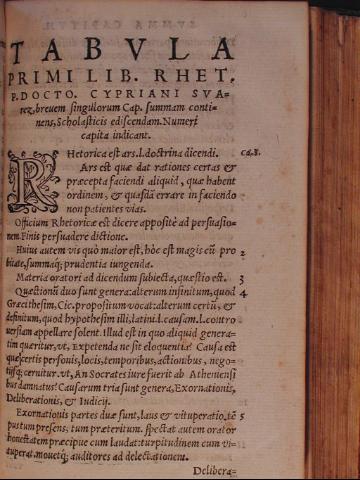 TABVLA
PRIMI LIB. RHET.
P. DOCTO. CYPRIANI SVA-
rez, breuem singulorum Cap. summam conti-
nens, Scholasticis ediscendam. Numeri
capita indicant.
RHetorica est ars .l. doctrina dicendi. ca. 1.
Ars est quæ dat rationes certas &
præcepta faciendi aliquid, quæ habent
ordinem, & quasdã errare in faciendo
non patientes vias.
Officium Rhetoricæ est dicere appositè ad persuasio-
nem. Finis persuadere dictione.
Huius autem vis quò maior est, hôc est magis cũ pro 2
bitate, summaq; prudentia iungenda.
Materia oratori ad dicendum subiecta, quæstio est. 3
Quæstionũ duo sunt genera: alterum infinitum, quod 4
Græci thesim, Cic. propositum vocat: alterum certũ, &
definitum, quod hypothesim illi, latini .l. causam .l. contro
uersiam appellare solent. Illud est in quo aliquid genera-
tim quæritur, vt, Expetenda ne sit eloquentia? Causa est
quæ certis personis, locis, temporibus, actionibus, nego-
tijsq; cernitur. vt, An Socrates iure fuerit ab Atheniensi
bus damnatus? Causarum tria sunt genera, Exornationis,
Deliberationis, & Iudicij.
Exornationis partes duæ sunt, laus & vituperatio. tẽ 5
pus tum presens, tum præteritum. spectat autem orator
honestatem præcipue cum laudat: turpitudinem cum vi-
tuperat. mouetq; auditores ad delectationem.
Delibera-